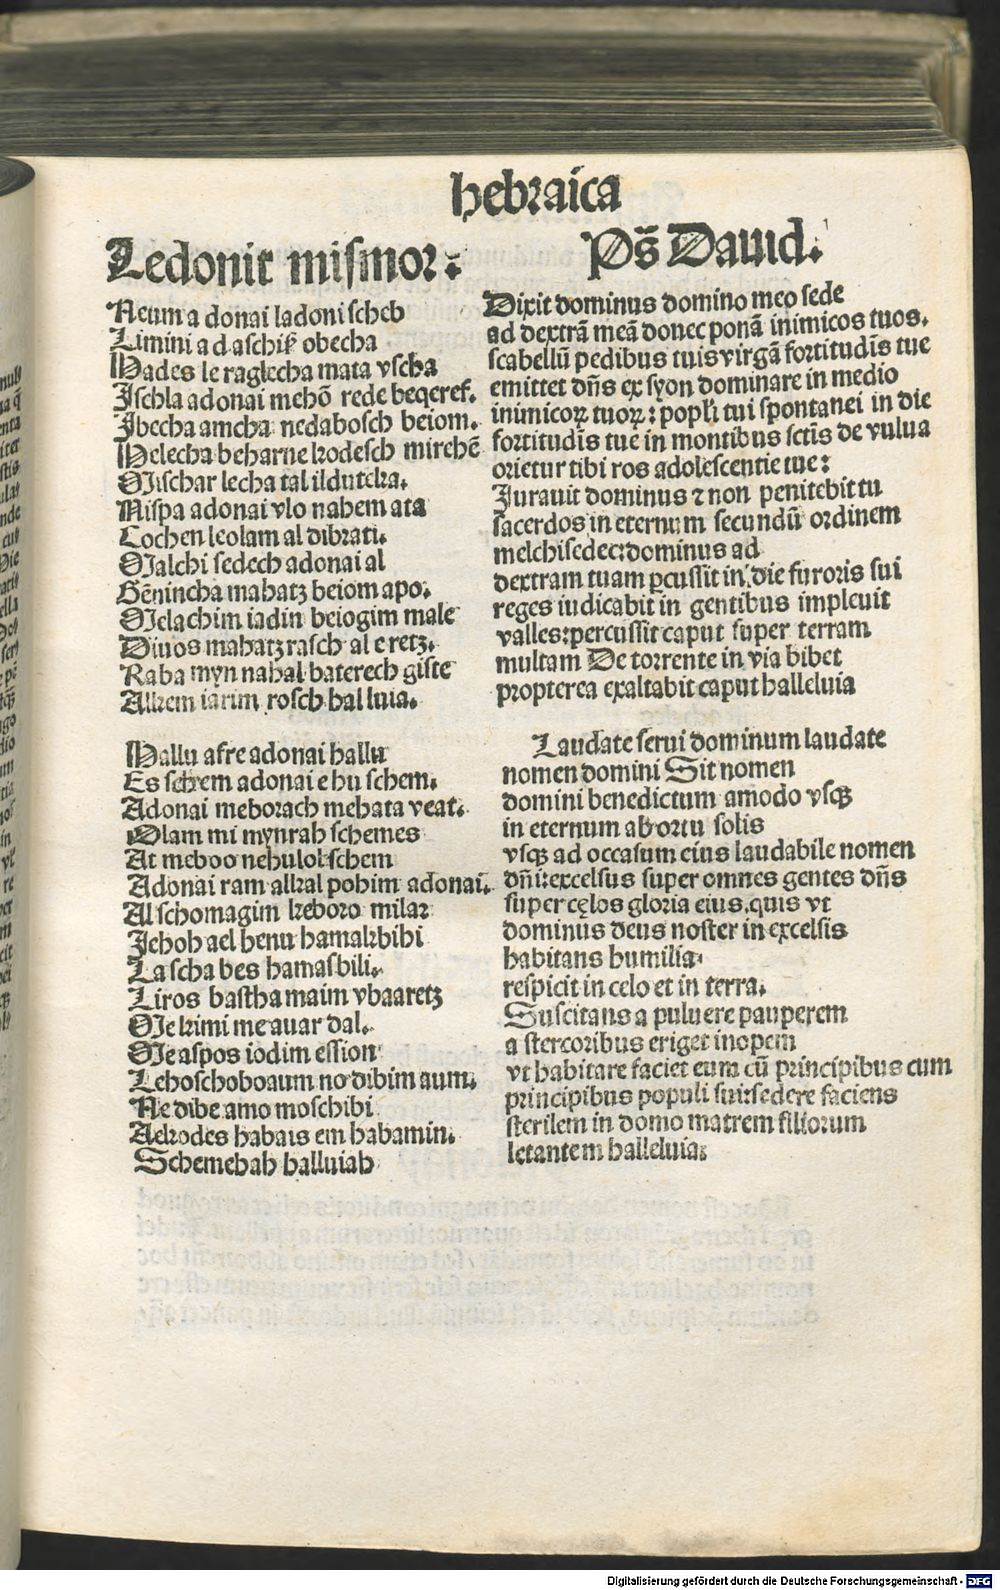 hebraica
Ledonit mismor:
Neum a donai ladoni scheb
Limini ad aschiꝭ obecha
Hades le raglecha mata vscha
Ischla adonai mehō rede beqeref.
Ibecha amcha nedabosch beiom.
Helecha beharne krodesch mirchē
Mischar lecha tal ildutekra.
Nispa adonai vlo nahem ata
Cochen leolam al dibrati.
Malchi sedech adonai al
Gēnincha mahatz beiom apo.
Melachim iadin beiogim male
Diuos mahatz rasch al e retz.
Raba myn nahal baterech giste
Alkem iarim rosch halluia.
Hallu afre adonai hallu
Es schem adonai e hu schem.
Adonai meborach mehata veat.
Olam mi mynrah schemes
At meboo nehulol schem
Adonai ram alkal pohim adonai.
Al schomagim keboro milar
Jehoh ael henu hamakbihi
La scha bes hamasbili.
Liros bastha maim vbaaretz
Me kimi me auar dal.
Me aspos iodim ession
Lehoschoboaum no dibim aum.
Ne dibe amo moschibi
Aekrodes habais em habamin.
Schemehah halluiah
Ps̄ Dauid.
Dixit dominus domino meo sede
ad dextrā meā donec ponā inimicos tuos.
scabellū pedibus tuis virgā fortitudīs tue
emittet dn̄s ex syon dominare in medio
inimicoꝝ tuoꝝ: popl'i tui spontanei in die
fortitudīs tue in montibus sctīs de vulua
orietur tibi ros adolescentie tue:
Jurauit dominus ⁊ non penitebit tu
sacerdos in eternum secundū ordinem
melchisedec:dominus ad
dextram tuam ꝑcussit in die furoris sui
reges iudicabit in gentibus impleuit
valles:percussit caput super terram
multam De torrente in via bibet
propterea exaltabit caput halleluia
Laudate serui dominum laudate
nomen domini Sit nomen
domini benedictum amodo vsqꝫ
in eternum ab ortu solis
vsqꝫ ad occasum eius laudabile nomen
dn̄i:excelsus super omnes gentes dn̄s
super cęlos gloria eius.quis vt
dominus deus noster in excelsis
habitans humilia
respicit in celo et in terra.
Suscitans a puluere pauperem
a stercoribus eriget inopem
vt habitare faciet eum cū principibus cum
principibus populi sui:sedere faciens
sterilem in domo matrem filiorum
letantem halleluia:
Digitalisierung gefördert durch die Deutsche Forschungsgemeinschaft - DFG